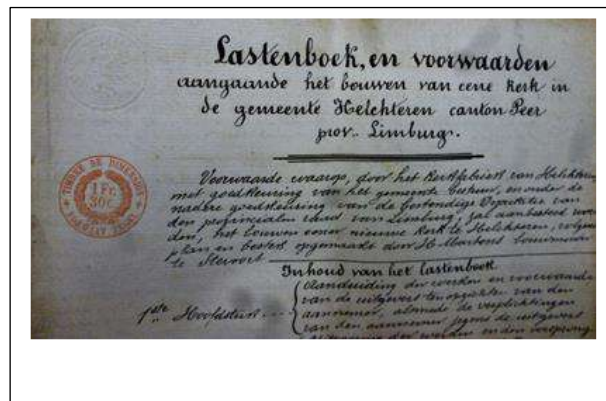 Lastenboek, en voorwaarden
aangaande het bouwen van eene kerk in
de gemeente Helchteren canton Peer
prov. Limburg.
TIMBRE DE DIMENSION
1 Fr.
30C.
Voorwaarde waarop, door het Kerkfabriek van Helchteren
met goedkeuring van het gemeente bestuur, en onder de
nadere goedkeuring van de bestendige Deputatie van
den provincialen raad van Limburg, zal aanbesteed wor-
den, het bouwen eener nieuwe kerk te Helchteren, volgens
plan en bestek opgemaakt door H. Martens bouwmeester
te Stevoort
Inhoud van het lastenboek.
Aanduiding der werken en voorwaarde
van de uitgevers ten opzichte van den
1ste Hoofdstuk aannemer, alsmede de verplichtingen
van den aannemer jegens de uitgevers
der werken en den oorsprong